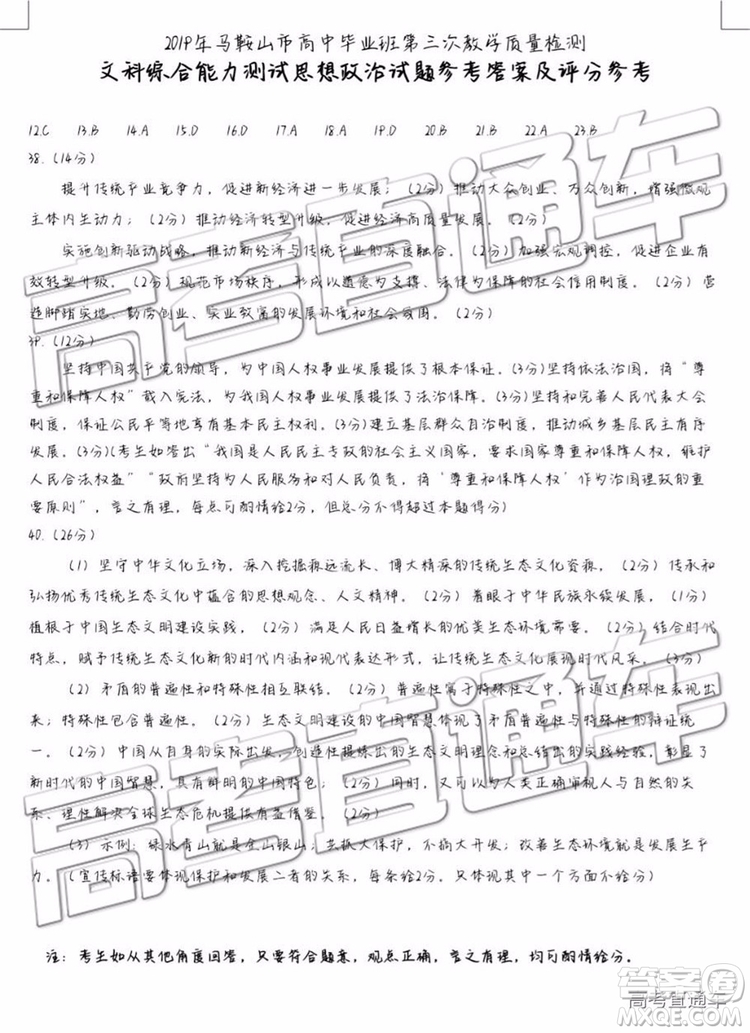 2019年马鞍山市高中毕业班第三次教学质量检测
文科综合能力测试思想政治试题参考答案及评分参考
12.C 13.B 14.A 15.D 16.D 17.A 18.A 19.D 20.B 21.B 22.A 23.B
38.（14分）
提升传统产业竞争力，促进新经济进一步发展；（2分）推动大众创业、万众创新，增强微观
主体内生动力；（2分）推动经济转型升级，促进经济高质量发展。（2分）
实施创新驱动战略，推动新经济与传统产业的深度融合。（2分）加强宏观调控，促进企业有
效转型升级。（2分）规范市场秩序，形成以道德为支撑、法律为保障的社会信用制度。（2分）营
造脚踏实地、勤劳创业、实业致富的发展环境和社会氛围。（2分）
39.（12分）
坚持中国共产党的领导，为中国人权事业发展提供了根本保证。（3分）坚持依法治国，将“尊
重和保障人权”载入宪法，为我国人权事业发展提供了法治保障。（3分）坚持和完善人民代表大会
制度，保证公民平等地享有基本民主权利。（3分）建立基层群众自治制度，推动城乡基层民主有序
发展。（3分）（考生如答出“我国是人民民主专政的社会主义国家，要求国家尊重和保障人权，维护
人民合法权益”“政府坚持为人民服务和对人民负责，将‘尊重和保障人权’作为治国理政的重
要原则”，言之有理，每点可酌情给2分，但总分不得超过本题得分）
40.（26分）
（1）坚守中华文化立场，深入挖掘源远流长、博大精深的传统生态文化资源。（2分）传承和
弘扬优秀传统生态文化中蕴含的思想观念、人文精神。（2分）着眼于中华民族永续发展，（1分）
植根于中国生态文明建设实践，（2分）满足人民日益增长的优美生态环境需要。（2分）结合时代
特点，赋予传统生态文化新的时代内涵和现代表达形式，让传统生态文化展现时代风采。（3分）
（2）矛盾的普遍性和特殊性相互联结。（2分）普遍性寓于特殊性之中，并通过特殊性表现出
来；特殊性包含普遍性。（2分）生态文明建设的中国智慧体现了矛盾普遍性与特殊性的辩证统
一。（2分）中国从自身的实际出发，创造性提炼出的生态文明理念和总结出的实践经验，彰显了
新时代的中国智慧，具有鲜明的中国特色；（2分）同时，又可以为人类正确审视人与自然的关
系、理性解决全球生态危机提供有益借鉴。（2分）
（3）示例：绿水青山就是金山银山；共抓大保护，不搞大开发；改善生态环境就是发展生产
力。（宣传标语要体现保护和发展二者的关系，每条给2分，只体现其中一个方面不给分）
注：考生如从其他角度回答，只要符合题意，观点正确，言之有理，均可酌情给分。
高考直通车
高考直通车
答案圈
高考直通车
MXQE.COM